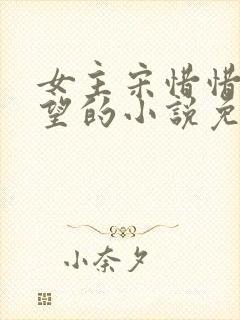 女主宋惜惜
望的小說免
小奈夕